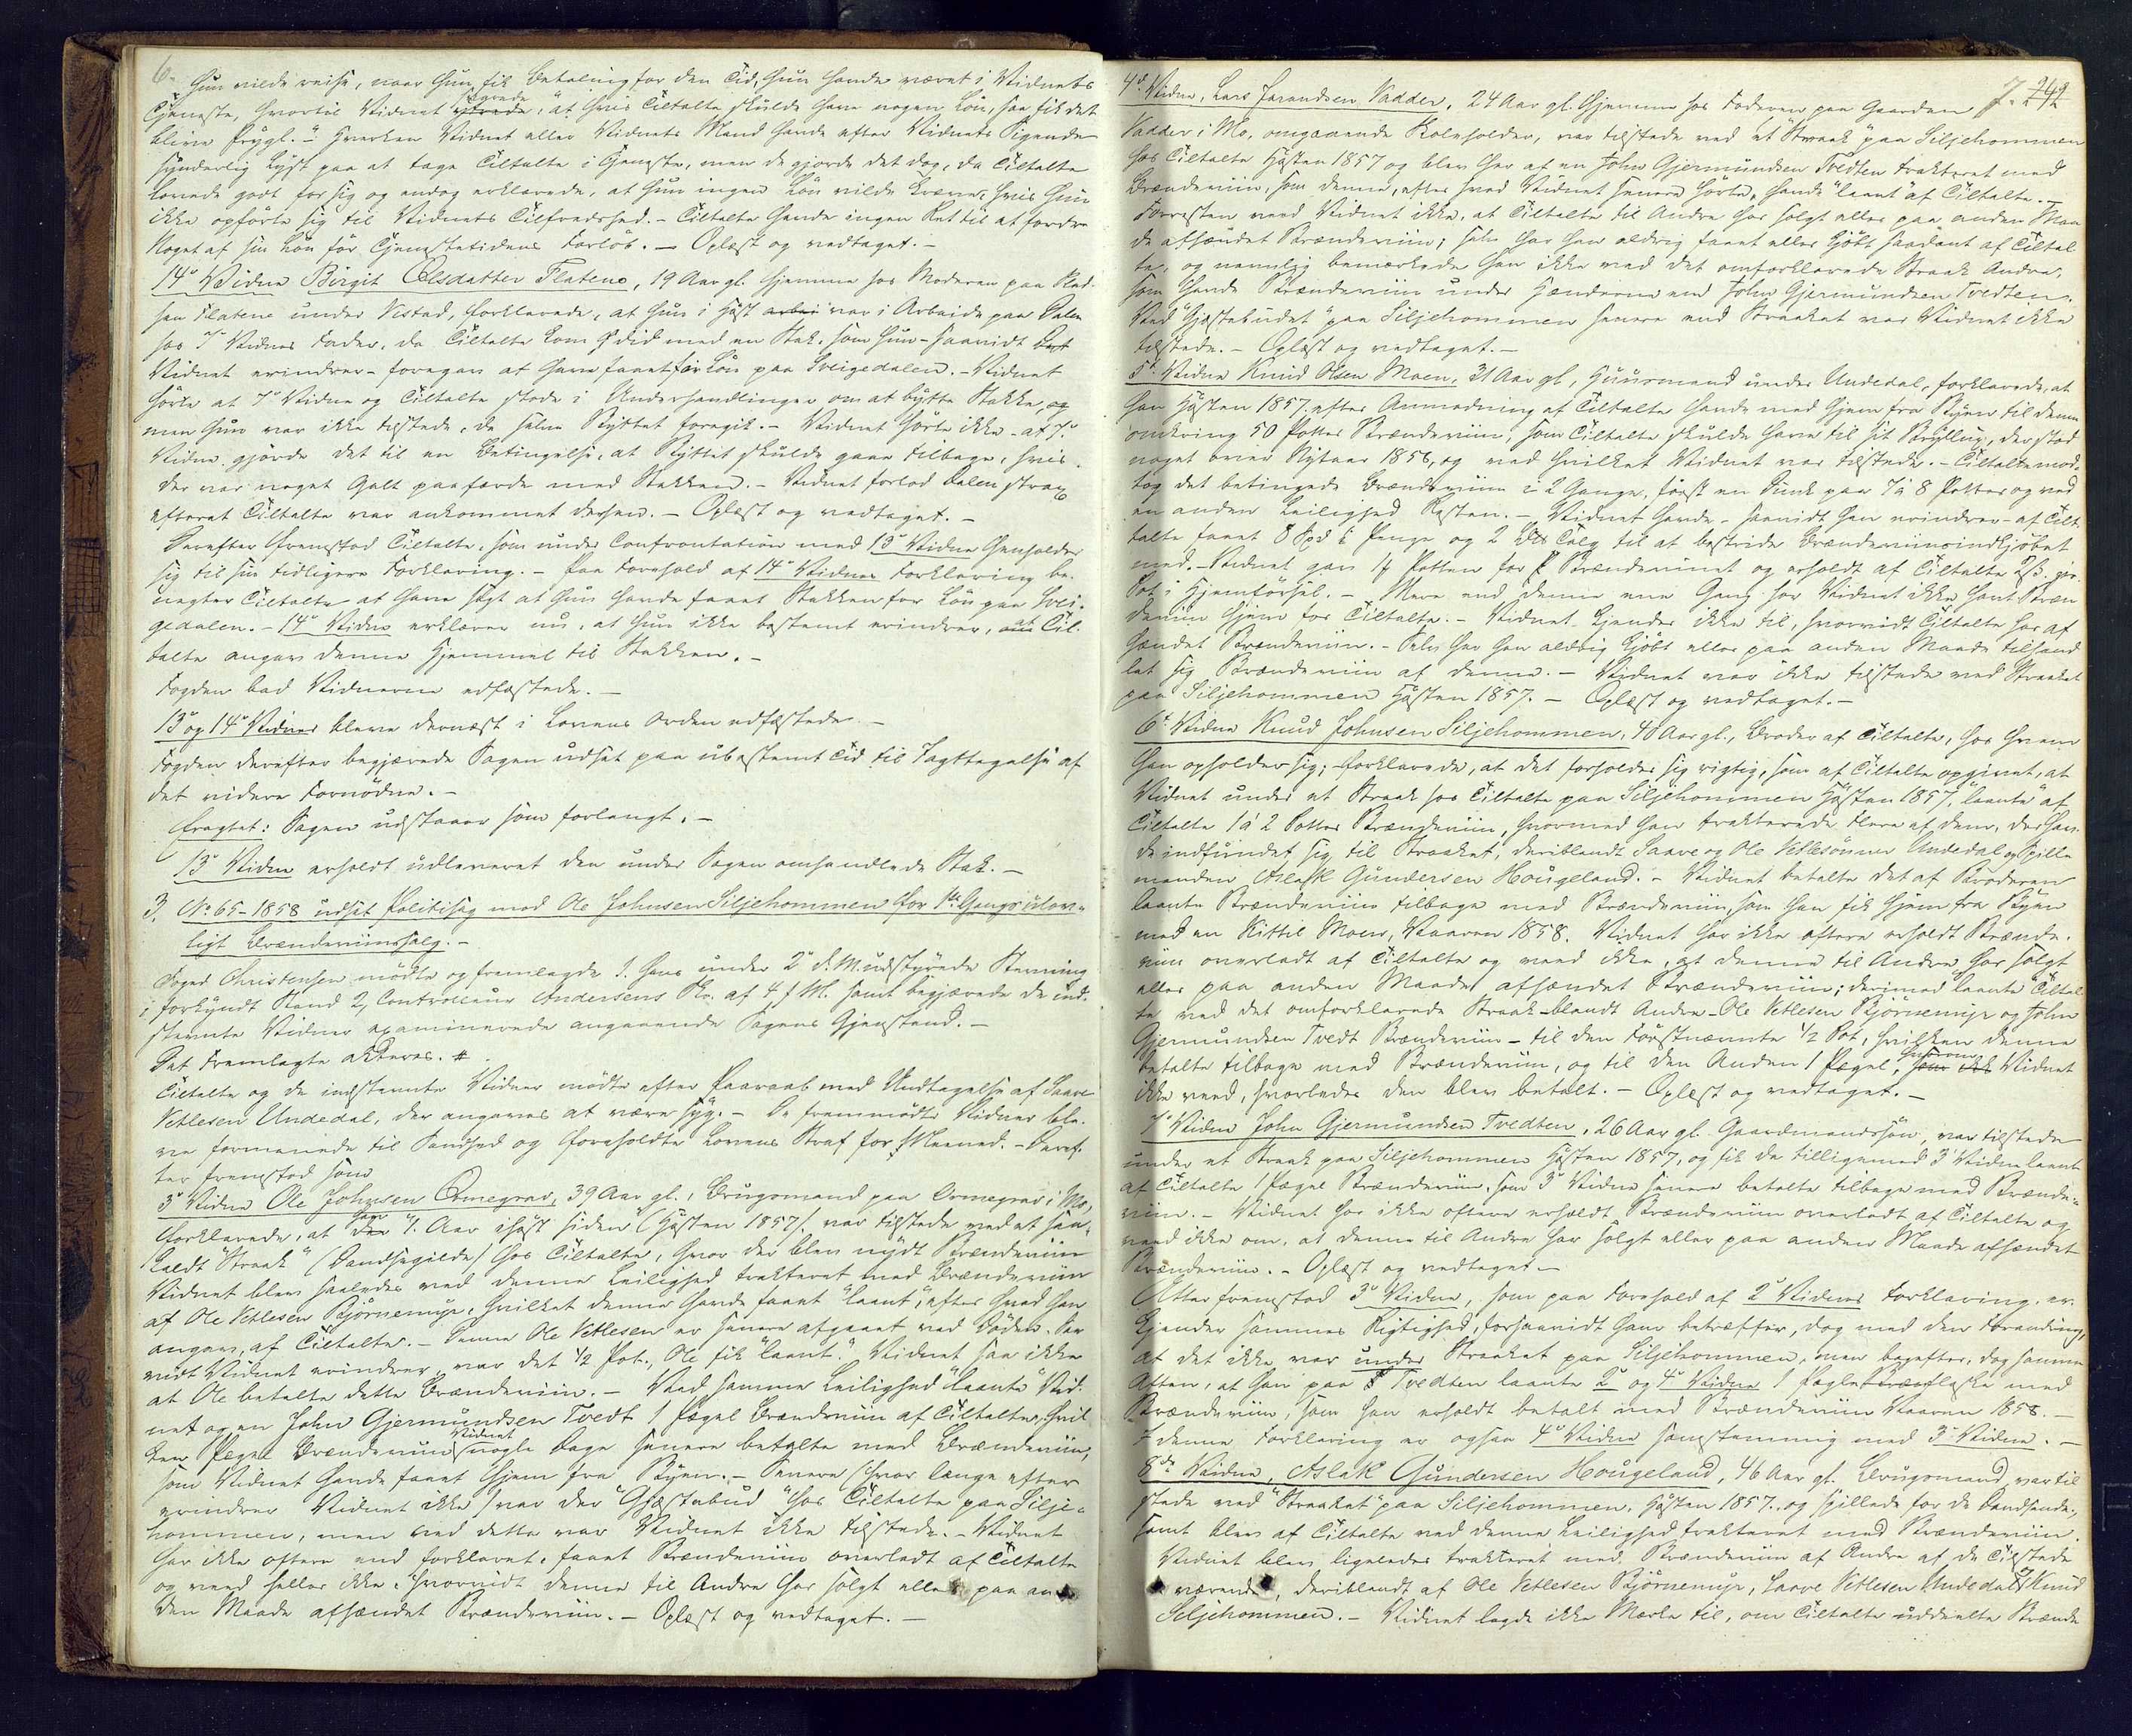 6.
Hun vilde reise, naar hun fik Betaling for den Tid, hun havde været i Vidnets
Tjeneste, hvortil Vidnet svarede, "at hvis Tiltalte skulde have nogen Løn, saa fik det
blive Prygl." Hverken Vidnet eller Vidnets Mand havde efter Vidnets Sigende
synderlig Lyst paa at tage Tiltalte i Tjeneste, men de gjorde det dog, da Tiltalte
lovede godt for sig og endog erklærede, at hun ingen Løn vilde kræve, hvis hun
ikke opførte sig til Vidnets Tilfredshed. - Tiltalte havde ingen Ret til at fordre
Noget af sin Løn før Tjenestetidens Forløb. - Oplæst og vedtaget. -
14de Vidne Birgit Olsdatter Flatene, 19 Aar gl. hjemme hos Moderen paa Plad-
sen Flatene under Vistad, forklarede, at hun i Høst var i Arbeide paa Dalen
hos 7de Vidnes Fader, da Tiltalte kom did med en Stak, som hun - saavidt
Vidnet erindrer - foregav at have faaet for Løn paa Sveigedalen. - Vidnet
hørte at 7de Vidne og Tiltalte stode i Underhandlinger om at bytte Stakke, og
men hun var ikke tilstede, da selve Byttet foregik. - Vidnet hørte ikke - at 7de
Vidne gjorde det til en Betingelse, at Byttet skulde gaae tilbage, hvis
der var noget Galt paafærde med Stakken. - Vidnet forlod Dalen strax
efterat Tiltalte var ankommet dersen. - Oplæst og vedtaget. -
Derefter fremstod Tiltalte, som under Confrontation med 13de Vidne henholder
sig til sin tidligere Forklaring. - Paa Forehold af 14de Vidnes Forklaring be-
nægter Tiltalte at have sagt at hun havde faaet Stakken for Løn paa Svei-
gedalen. - 14de Vidne erklærer nu, at hun ikke bestemt erindrer, at Til-
talte angav denne Hjemmel til Stakken. -
Fogden bad Vidnerne edfæstede. -
13de og 14de Vidner bleve dernæst i Lovens Orden edfæstede. -
Fogden derefter begjærede Sagen udsat paa ubestemt Tid til Iagttagelse af
det videre Fornødne. -
Eragtet: Sagen udstaaer som forlangt. -
13de Vidne erholdt udleveret den under Sagen omhandlede Stak. -
3. No 65-1858 udsat Politisag mod Ole Johnsen Siljehommen for 1ste Gangs ulov-
ligt Brændeviinssalg. -
Foged Christensen mødte og fremlagde 1, hans under 2de d. M. udstyrede Stevning
i forkyndt Stand 2, Controlleur Andersens Skr. af 4 f. M. samt begjærede de ind-
stevnte Vidner examinerede angaaende Sagens Gjenstand. -
Det Fremlagte akteres. #.
Tiltalte og de indstevnte Vidner mødte efter Paaraab med Undtagelse af Saave
Vetlesen Undedal, der angaves at være syg. - De fremmødte Vidner ble-
ve formanede til Sandhed og foreholdte Lovens Straf for Meeneed. - Deref-
ter fremstod som
3de Vidne Ole Johnsen Ormegrav, 39 Aar gl., Brugsmand paa Ormegrav i Mo,
forklarede, at han 1. Aar ihøst siden (Høsten 1857) var tilstede ved et saa-
kaldt "Straak" (Dandsegilde) hos Tiltalte, hvor der blev nydt Brændeviin
Vidnet blev saaledes ved denne Leilighed trakteret med Brændeviin
af Ole Vetlesen Bjørnemyr, hvilket denne havde faaet "laant", efter hvad han
angav, af Tiltalte. - Denne Ole Vetlesen er senere afgaaet ved Døden. Saa
vidt Vidnet erindrer, var det 1/2 Pot., Ole fik "laant". Vidnet saa ikke
at Ole betalte dette Brændeviin. - Ved samme Leilighed "laante" Vid-
net og en John Gjermundsen Tvedt 1 Pægel Brændeviin af Tiltalte, hvil
ken Pægel Brændeviin Vidnet nogle Dage senere betalte med Brændeviin,
som Vidnet havde faaet hjem fra Byen. - Senere (hvor længe efter
erindrer Vidnet ikke) var der "Gjæstebud" hos Tiltalte paa Silje-
hommen, men ved dette var Vidnet ikke tilstede. - Vidnet
har ikke oftere end forklaret, faaet Brændeviin overladt af Tiltalte
og veed heller ikke, hvorvidt denne til Andre har solgt eller paa an
den Maade afhændet Brændeviin. - Oplæst og vedtaget. -
7. 242
4de Vidne, Lars Tarandsen Vadder, 24 Aar gl. hjemme hos Faderen paa Gaarden
Vadder i Mo, omgaaende Skoleholder, var tilstede ved et "Straak" paa Siljehommen
hos Tiltalte Høsten 1857 og blev her af en John Gjermundsen Tvedten trakteret med
Brændeviin, som denne, efter hvad Vidnet senere hørte, havde "laant" af Tiltalte. -
Forresten veed Vidnet ikke, at Tiltalte til Andre har solgt eller paa anden Maa
de afhændet Brændeviin; selv har han aldrig faaet eller kjøbt saadant af Tiltal
te, og nemlig bemærkede han ikke ved det omforklarede Straak Andre,
som havde Brændeviin under Hænderne end John Gjermundsen Tvedten.
Ved "Gjæstebudet" paa Siljehommen senere end Straaket var Vidnet ikke
tilstede. - Oplæst og vedtaget. -
5te Vidne Knud Olsen Moen, 31 Aar gl, Huusmand under Undedal, forklarede, at
han Høsten 1857 efter Anmodning af Tiltalte havde med hjem fra Byen til denne
omkring 50 Potter Brændeviin, som Tiltalte skulde have til sit Bryllup, der stod
noget over Nytaar 1858, og ved hvilket Vidnet var tilstede. - Tiltalte mod-
tog det betingede Brændeviin i 2 Gange, først en Dunk paa 7 à 8 Potter og ved
en anden Leilighed Resten. - Vidnet havde - saavidt han erindrer - af Tilt
talte faaet 8 Spd i Penge og 2 Talg til at bestride Brændeviinsindkjøbet
med. - Vidnet gav Potten for Brændevinet og erholdt af Tiltalte
Pot i Hjemførsel. - Mere end denne ene Gang har Vidnet ikke havt Bræn
deviin hjem for Tiltalte. - Vidnet kjender ikke til, hvorvidt Tiltalte har af
hændet Brændeviin. - Selv har han aldrig kjøbt eller paa anden Maade tilhand
let sig Brændeviin af denne. - Vidnet var ikke tilstede ved Straaket
paa Siljehommen Høsten 1857. - Oplæst og vedtaget. -
6te Vidne Knud Johnsen Siljehommen, 40 Aar gl., Broder af Tiltalte, hos hvem
han opholder sig, forklarede, at det forholder sig rigtig, som af Tiltalte opgivet, at
Vidnet under et Straak hos Tiltalte paa Siljehommen Høsten 1857, "laante" af
Tiltalte 1 à 2 Potter Brændeviin, hvormed han trakterede Flere af dem, der hav-
de indfundet sig til Straaket, deriblandt Saave og Ole Vetlesønner Undedal og Spille
manden Aslak Gundersen Hougeland. - Vidnet betalte det af Broderen
laante Brændeviin tilbage med Brændeviin, som han fik hjem fra Byen
med en Kittil Moen, Vaaren 1858. Vidnet har ikke oftere erholdt Brænde-
viin overladt af Tiltalte og veed ikke, at denne til Andre har solgt
eller paa anden Maade afhændet Brændeviin; derimod laante Tiltal
te ved det omforklarede Straak - blandt Andre - Ole Vetlesen Bjørnemyr og John
Gjermundsen Tvedt Brændeviin - til den Førstnævnte 1/2 Pot, hvilken denne
betalte tilbage med Brændeviin, og til den Anden 1 Pægel, hvorom Vidnet
ikke veed, hvorledes den blev betalt. - Oplæst og vedtaget. -
7de Vidne John Gjermundsen Tvedten, 26 Aar gl. Gaardmandssøn, var tilstede
under et Straak paa Siljehommen Høsten 1857, og fik da tilligemed 3de Vidne laant
af Tiltalte 1 Pægel Brændeviin, som 3de Vidne senere betalte tilbage med Brænde-
viin. - Vidnet har ikke oftere erholdt Brændeviin overladt af Tiltalte og
veed ikke om, at denne til Andre har solgt eller paa anden Maade afhændet
Brændeviin. - Oplæst og vedtaget -
Atter fremstod 3de Vidne, som paa Forehold af 2de Vidnes Forklaring, er-
kjender sammes Rigtighed, forsaavidt ham betræffer, dog med den Forandring,
at det ikke var under Straaket paa Siljehommen, men bagefter, dog samme
Aften, at han paa Tvedten laante 2de og 4de Vidne 1 Pægleflaske med
Brændeviin, som han erholdt betalt med Brændeviin Vaaren 1858. -
I denne Forklaring er ogsaa 4de Vidne samstemmig med 3de Vidne. -
8de Vidne, Aslak Gundersen Hougeland, 46 Aar gl. Brugsmand, var til
stede ved "Straaket" paa Siljehommen, Høsten 1857, og spillede for de Dandsende,
samt blev af Tiltalte ved denne Leilighed trakteret med Brændeviin.
Vidnet blev ligeledes trakteret med Brændeviin af Andre af de Tilstede
værende, deriblandt af Ole Vetlesen Bjørnemyr, Saave Vetlesen Undedal og Knud
Siljehommen. - Vidnet lagde ikke Mærke til, om Tiltalte uddeelte Brænde